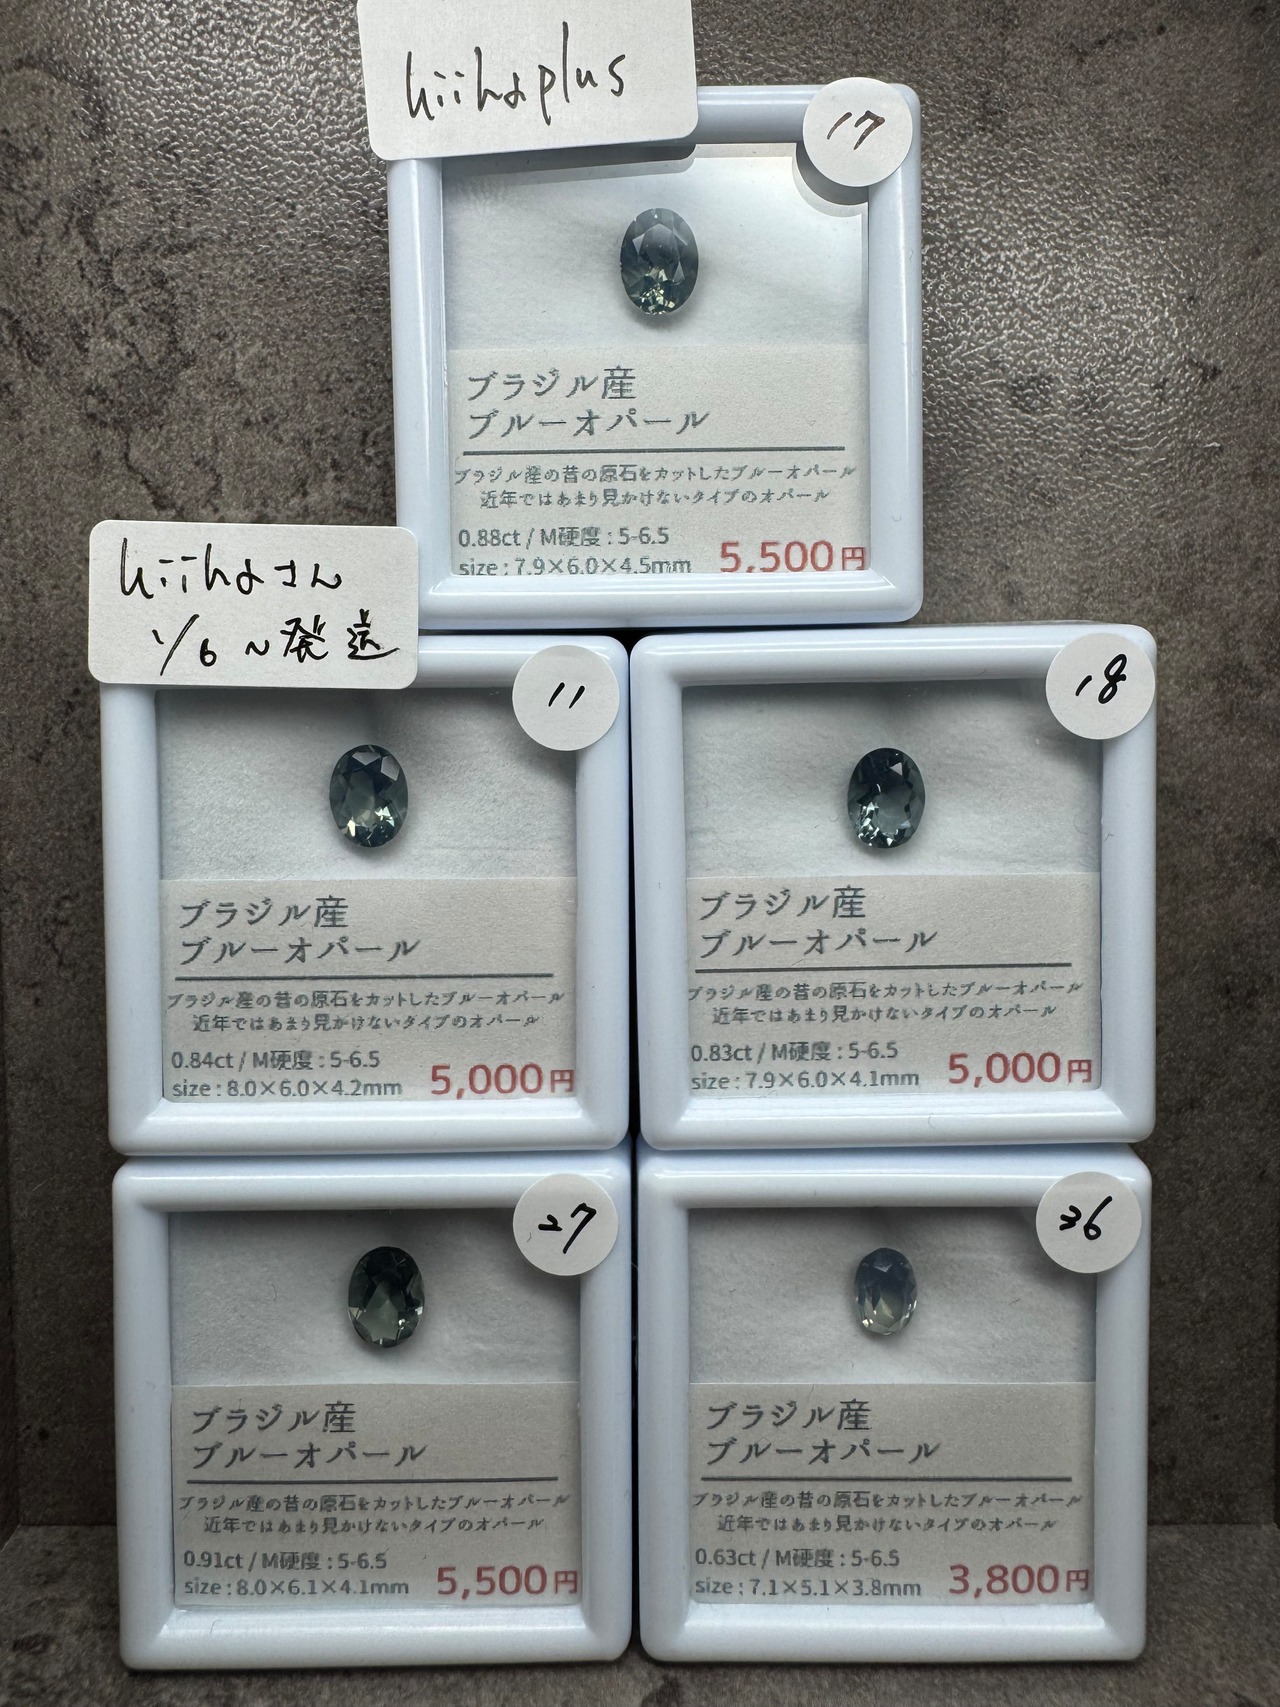 kiihaplus
17
ブラジル産
ブルーオパール
ブラジル産の昔の原石をカットしたブルーオパール
近年ではあまり見かけないタイプのオパール
0.88ct / M硬度 : 5-6.5
size : 7.9×6.0×4.5mm 5,500円
kiihaさん
1/6〜発送
11
ブラジル産
ブルーオパール
ブラジル産の昔の原石をカットしたブルーオパール
近年ではあまり見かけないタイプのオパール
0.84ct / M硬度 : 5-6.5
size : 8.0×6.0×4.2mm 5,000円
18
ブラジル産
ブルーオパール
ブラジル産の昔の原石をカットしたブルーオパール
近年ではあまり見かけないタイプのオパール
0.83ct / M硬度 : 5-6.5
size : 7.9×6.0×4.1mm 5,000円
27
ブラジル産
ブルーオパール
ブラジル産の昔の原石をカットしたブルーオパール
近年ではあまり見かけないタイプのオパール
0.91ct / M硬度 : 5-6.5
size : 8.0×6.1×4.1mm 5,500円
36
ブラジル産
ブルーオパール
ブラジル産の昔の原石をカットしたブルーオパール
近年ではあまり見かけないタイプのオパール
0.63ct / M硬度 : 5-6.5
size : 7.1×5.1×3.8mm 3,800円